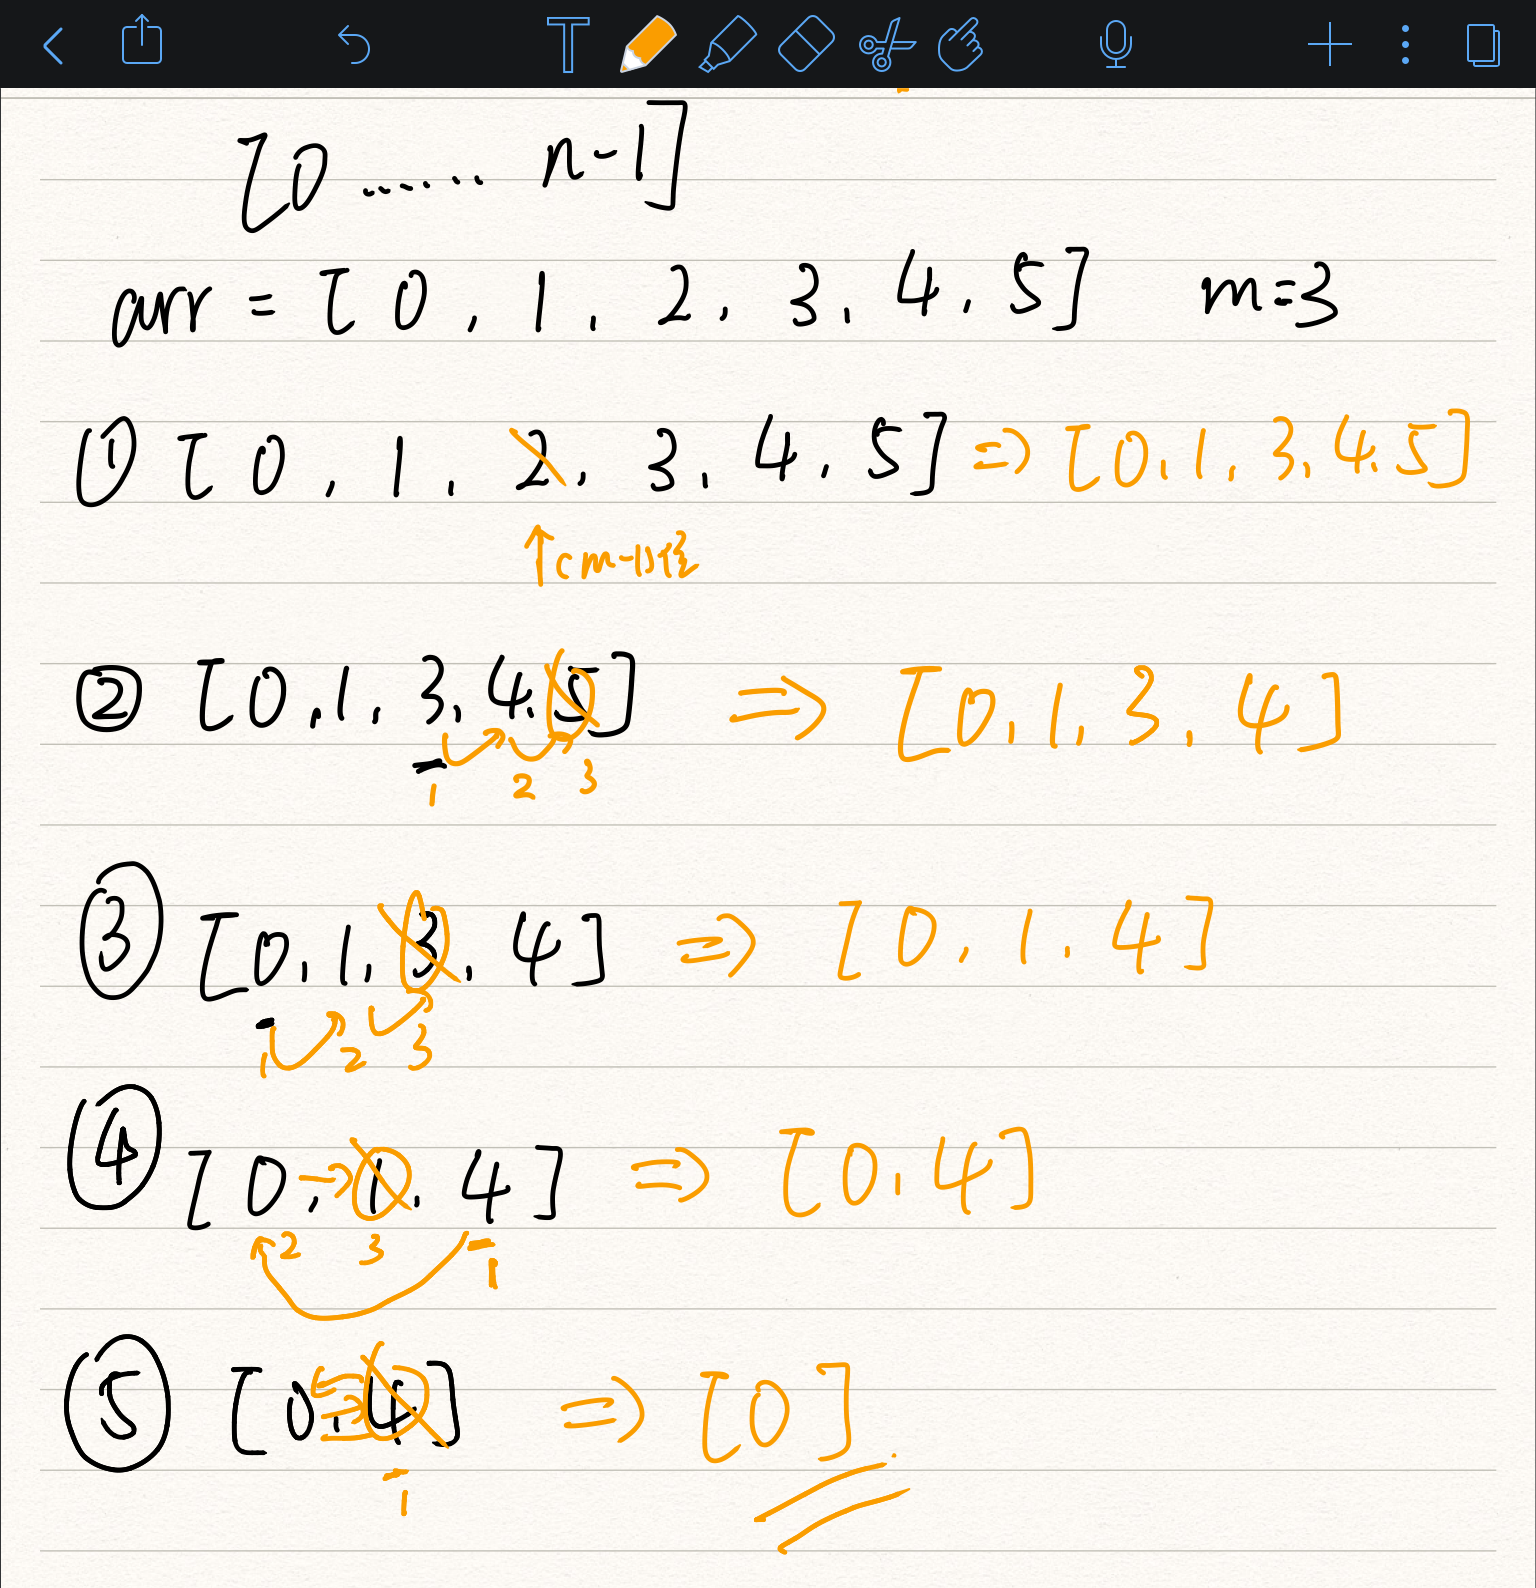 [0 ....... n-1]
arr = [0, 1, 2, 3, 4, 5] m=3
① [0, 1, 2, 3, 4, 5] => [0, 1, 3, 4, 5]
↑(m-1)位
② [0, 1, 3, 4, 5] => [0, 1, 3, 4]
1 2 3
③ [0, 1, 3, 4] => [0, 1, 4]
1 2 3
④ [0, 1, 4] => [0, 4]
2 3 1
⑤ [0, 4] => [0]
1